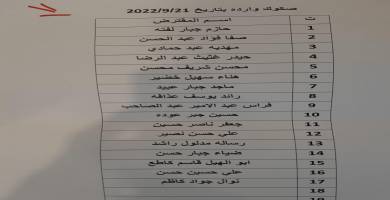 صكوك وارده بتاريخ 2022/9/21
ت اسم المقترض
1 حازم جبار لفته
2 صفا فؤاد عبد الحسن
3 مهديه عبد حمادي
4 حيدر غثيث عبد الرضا
5 محسن شريف محسن
6 هناء سهيل خضير
7 ماجد جبار عبيد
8 رائد يوسف عذافه
9 فراس عبد الامير عبد الصاحب
10 حسين جبر عوده
11 جعفر ناصر حسين
12 علي حسن نصير
13 رساله مدلول راشد
14 ضياء جبار حسن
15 ابو الهيل قاسم كاطع
16 علي حسين حسن
17 نوال جواد كاظم
18